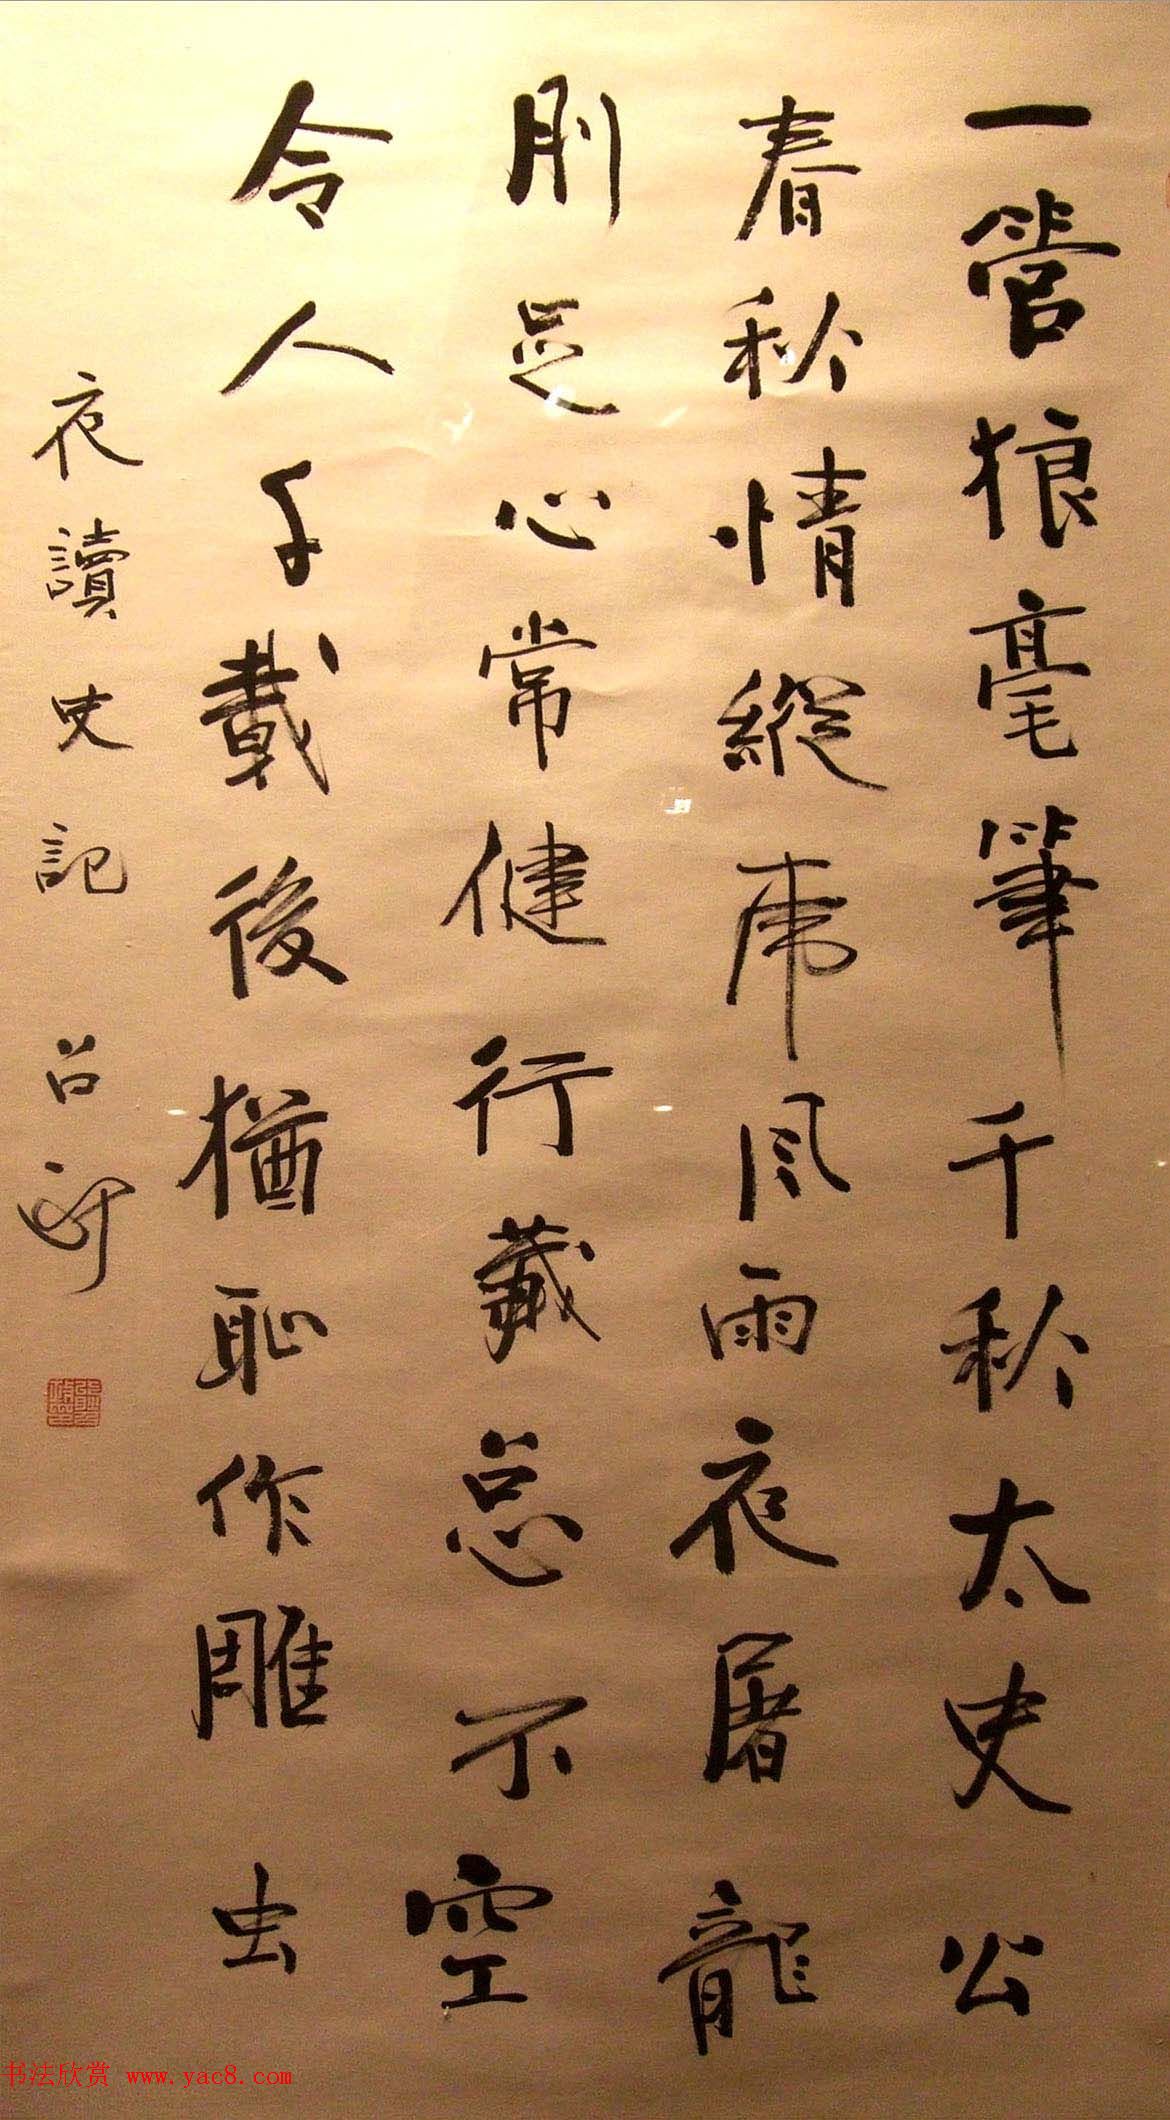 一管狼毫筆千秋太史公
春秋情縱虎風雨夜屠龍
刖足心常健行藏总不空
令人千載後猶恥作雕虫
夜讀史記
书法欣赏 www.yac8.com